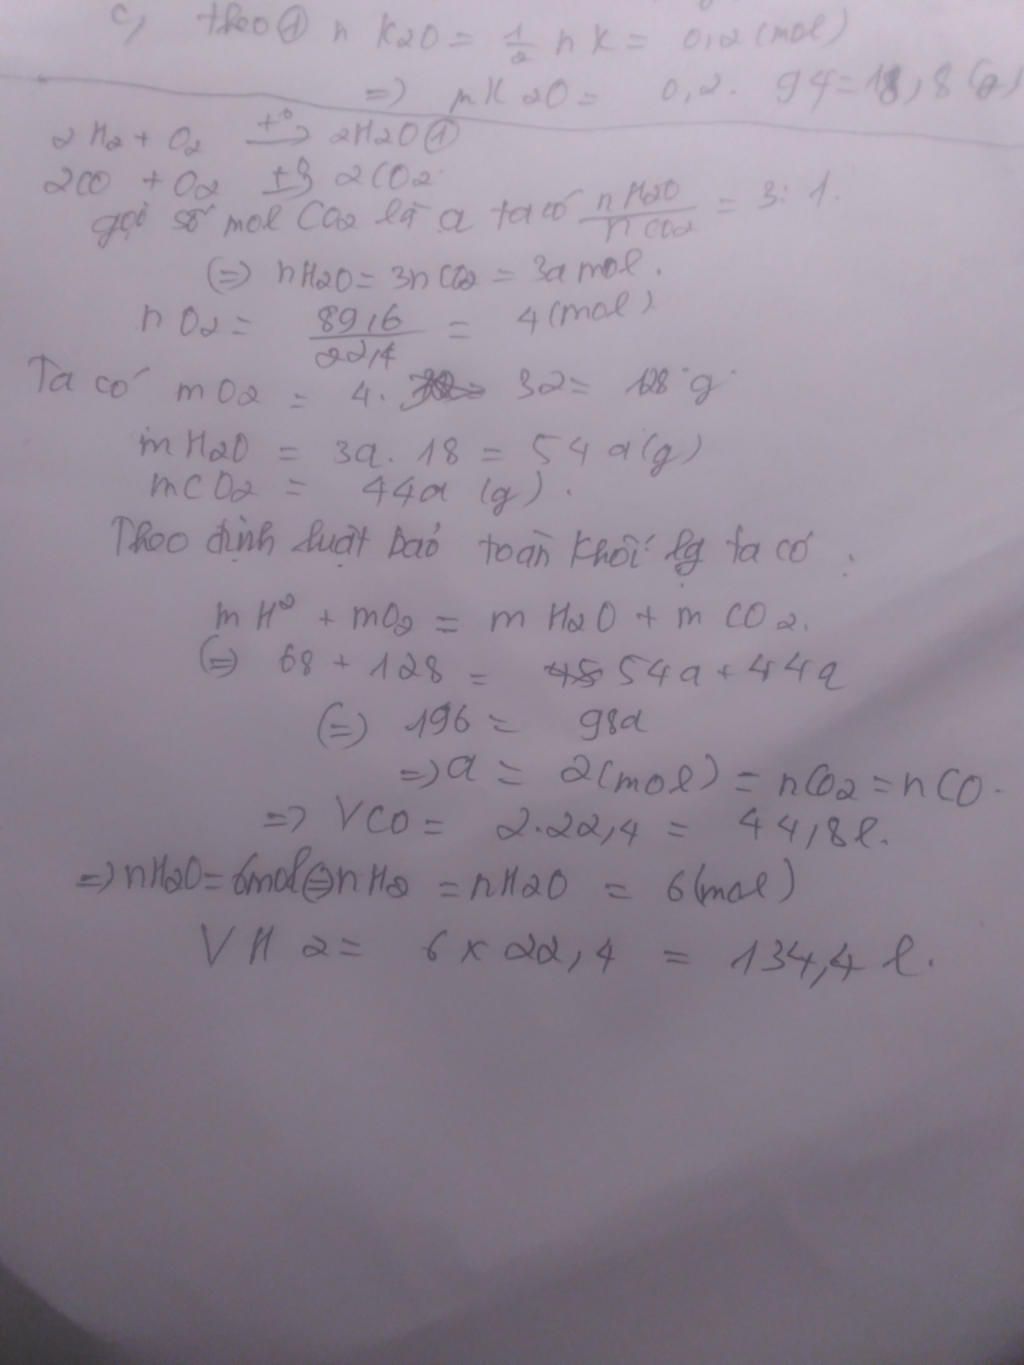 c, theo ① n K2O = 1/2 n K = 0,2 (mol)
=> mK2O = 0,2. 94 = 18,8 (g)
2H2 + O2 t°→ 2H2O ①
2CO + O2 t°→ 2CO2
gọi số mol CO2 là a ta có nH2O/nCO2 = 3:1.
(=) nH2O = 3nCO2 = 3a mol.
nO2 = 89,6/22,4 = 4 (mol)
Ta có mO2 = 4. 32 = 128 g
mH2O = 3a. 18 = 54a (g)
mCO2 = 44a (g).
Theo định luật bảo toàn khối lg ta có :
m H² + mO2 = m H2O + m CO2.
(=) 68 + 128 = 54a + 44a
(=) 196 = 98a
=> a = 2 (mol) = nCO2 = nCO.
=> VCO = 2.22,4 = 44,8 l.
=> nH2O = 6mol (=) nH2 = nH2O = 6 (mol)
VH2 = 6 x 22,4 = 134,4 l.